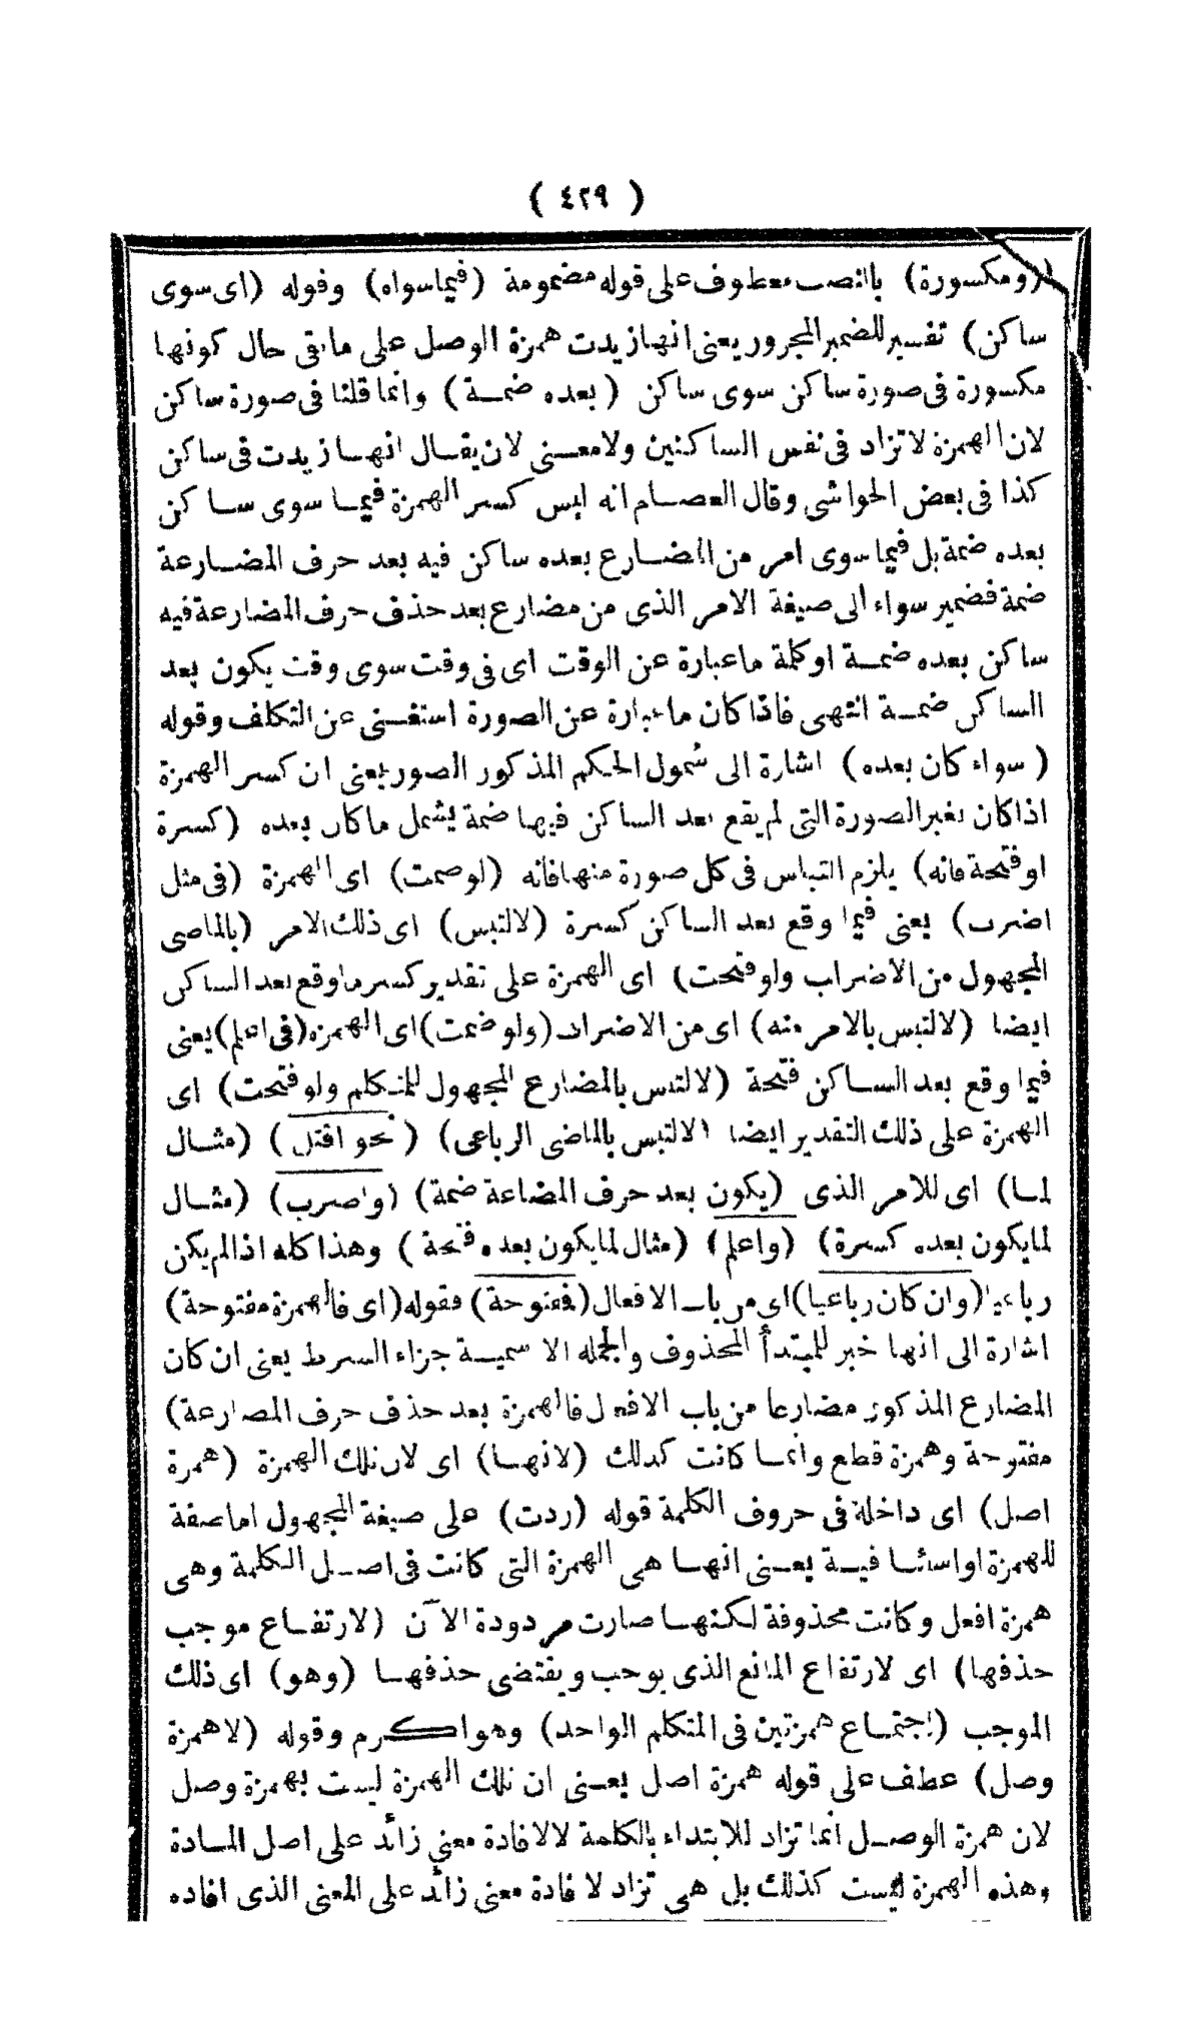 ( ٤٢٩ )
(ومكسورة) بالنصب معطوف على قوله مضمومة (فيما سواه) وقوله (اى سوى
ساكن) تفسير للضمير المجرور يعنى انها زيدت همزة الوصل على ما بقى حال كونها
مكسورة فى صورة ساكن سوى ساكن (بعده ضمة) وانما قلنا فى صورة ساكن
لان الهمزة لا تزاد فى نفس الساكنين ولا معنى لان يقال انها زيدت فى ساكن
كذا فى بعض الحواشى وقال العصام انه ليس كسر الهمزة فيما سوى ساكن
بعده ضمة بل فيما سوى امر من المضارع بعده ساكن فيه بعد حرف المضارعة
ضمة فضمير سواء الى صيغة الامر الذى من مضارع بعد حذف حرف المضارعة فيه
ساكن بعده ضمة او كلمة ما عبارة عن الوقت اى فى وقت سوى وقت يكون بعد
الساكن ضمة انتهى فاذا كان ما عبارة عن الصورة استغنى عن التكلف وقوله
(سواء كان بعده) اشارة الى شمول الحكم المذكور الصور يعنى ان كسر الهمزة
اذا كان بغير الصورة التى لم يقع بعد الساكن فيها ضمة يشمل ما كان بعده (كسرة
او فتحة فانه) يلزم التباس فى كل صورة منها فانه (لو ضمت) اى الهمزة (فى مثل
اضرب) يعنى فيما وقع بعد الساكن كسرة (لالتبس) اى ذلك الامر (بالماضى
المجهول من الاضراب ولو فتحت) اى الهمزة على تقدير كسر ما وقع بعد الساكن
ايضا (لالتبس بالامر منه) اى من الاضراب (ولو ضمت) اى الهمزة (فى اعلم) يعنى
فيما وقع بعد الساكن فتحة (لالتبس بالمضارع المجهول للمتكلم ولو فتحت) اى
الهمزة على ذلك التقدير ايضا (لالتبس بالماضى الرباعى) (نحو اقتل) (مثال
لما) اى للامر الذى (يكون بعد حرف المضاعة ضمة) (واضرب) (مثال
لما يكون بعده كسرة) (واعلم) (مثال لما يكون بعده فتحة) وهذا كله اذا لم يكن
رباعيا (وان كان رباعيا) اى من باب الافعال (ففتوحة) فقوله (اى فالهمزة مفتوحة)
اشارة الى انها خبر للمبتدأ المحذوف والجملة الاسمية جزاء الشرط يعنى ان كان
المضارع المذكور مضارعا من باب الافعال فالهمزة بعد حذف حرف المضارعة)
مفتوحة وهمزة قطع وانما كانت كذلك (لانها) اى لان تلك الهمزة (همزة
اصل) اى داخلة فى حروف الكلمة قوله (ردت) على صيغة المجهول اما صفة
للهمزة او استئنافية يعنى انها هى الهمزة التى كانت فى اصل الكلمة وهى
همزة افعل وكانت محذوفة لكنها صارت مردودة الآن (لارتفاع موجب
حذفها) اى لارتفاع المانع الذى يوجب ويقتضى حذفها (وهو) اى ذلك
الموجب (اجتماع همزتين فى المتكلم الواحد) وهو اكرم وقوله (لا همزة
وصل) عطف على قوله همزة اصل يعنى ان تلك الهمزة ليست بهمزة وصل
لان همزة الوصل انما تزاد للابتداء بالكلمة لا لافادة معنى زائد على اصل المادة
وهذه الهمزة ليست كذلك بل هى تزاد لافادة معنى زائد على المعنى الذى افاده